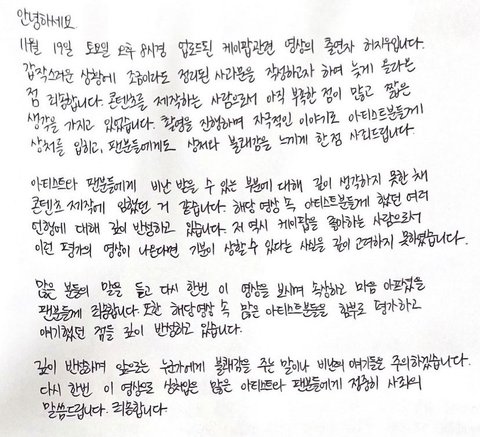 안녕하세요
11월 19일 토요일 오후 8시경 업로드된 케이팝관련 영상의 출연자 허지우입니다.
갑작스러운 상황에 조금이라도 정리된 사과문을 작성하고자 하여 늦게 올라온
점 죄송합니다. 콘텐츠를 제작하는 사람으로서 아직 부족한 점이 많고 짧은
생각을 가지고 있었습니다. 촬영을 진행하며 자극적인 이야기로 아티스트분들께
상처를 입히고, 팬분들에게도 상처와 불쾌감을 느끼게 한 점 사죄드립니다.
아티스트와 팬분들에게 비난 받을 수 있는 부분에 대해 깊이 생각하지 못한 채
콘텐츠 제작에 임했던 거 같습니다. 해당 영상 속 아티스트분들께 했던 여러
언행에 대해 깊이 반성하고 있습니다. 저 역시 케이팝을 좋아하는 사람으로서
이런 평가의 영상이 나온다면 기분이 상할 수 있다는 사실을 깊이 고려하지 못하였습니다.
많은 분들의 말을 듣고 다시 한번 이 영상을 보시며 속상하고 마음 아파했을
팬분들께 죄송합니다. 또한 해당영상 속 많은 아티스트분들을 함부로 평가하고
얘기했던 점들 깊이 반성하고 있습니다.
깊이 반성하며 앞으로는 누군가에게 불쾌감을 주는 말이나 비난의 얘기들을 주의하겠습니다.
다시 한번 이 영상으로 상처입은 많은 아티스트와 팬분들에게 정중히 사과의
말씀드립니다. 죄송합니다